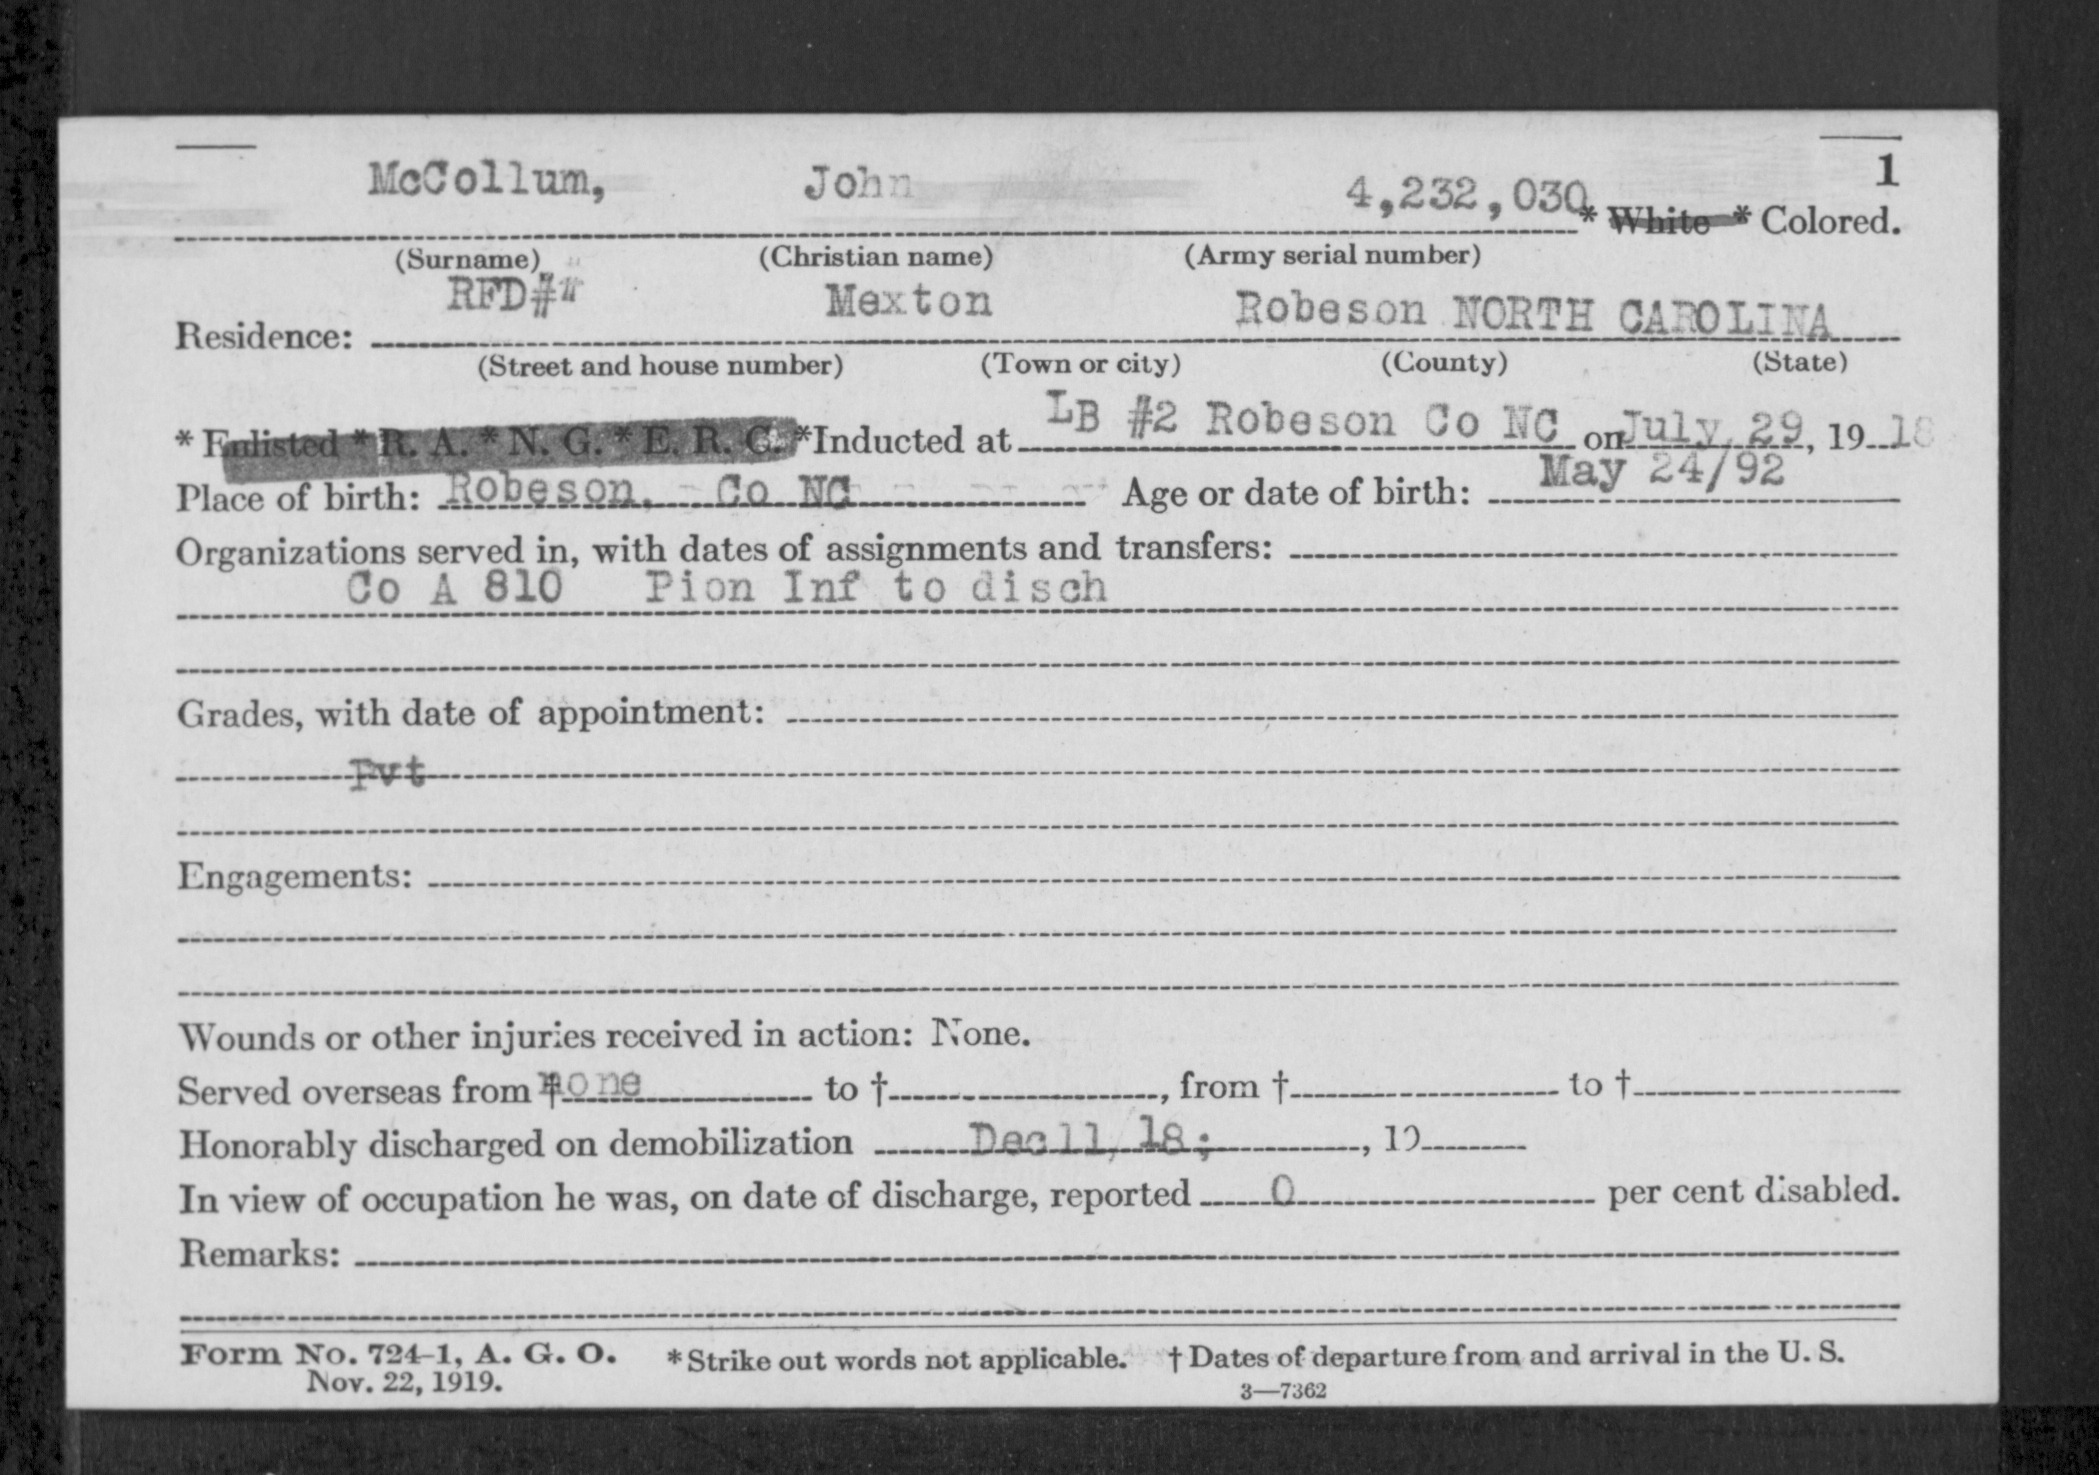 1
McCollum, John 4,232,030 * White * Colored.
(Surname) (Christian name) (Army serial number)
RFD## Mexton Robeson NORTH CAROLINA
Residence:
(Street and house number) (Town or city) (County) (State)
* Enlisted * R. A. * N. G. * E. R. C. *Inducted at LB #2 Robeson Co NC on July 29, 19 18
Place of birth: Robeson, Co NC Age or date of birth: May 24/92
Organizations served in, with dates of assignments and transfers:
Co A 810 Pion Inf to disch
Grades, with date of appointment:
Pvt
Engagements:
Wounds or other injuries received in action: None.
Served overseas from † none to †, from † to †
Honorably discharged on demobilization Dec 11/18; , 19
In view of occupation he was, on date of discharge, reported 0 per cent disabled.
Remarks:
Form No. 724-1, A. G. O. *Strike out words not applicable. † Dates of departure from and arrival in the U. S.
Nov. 22, 1919. 3—7362